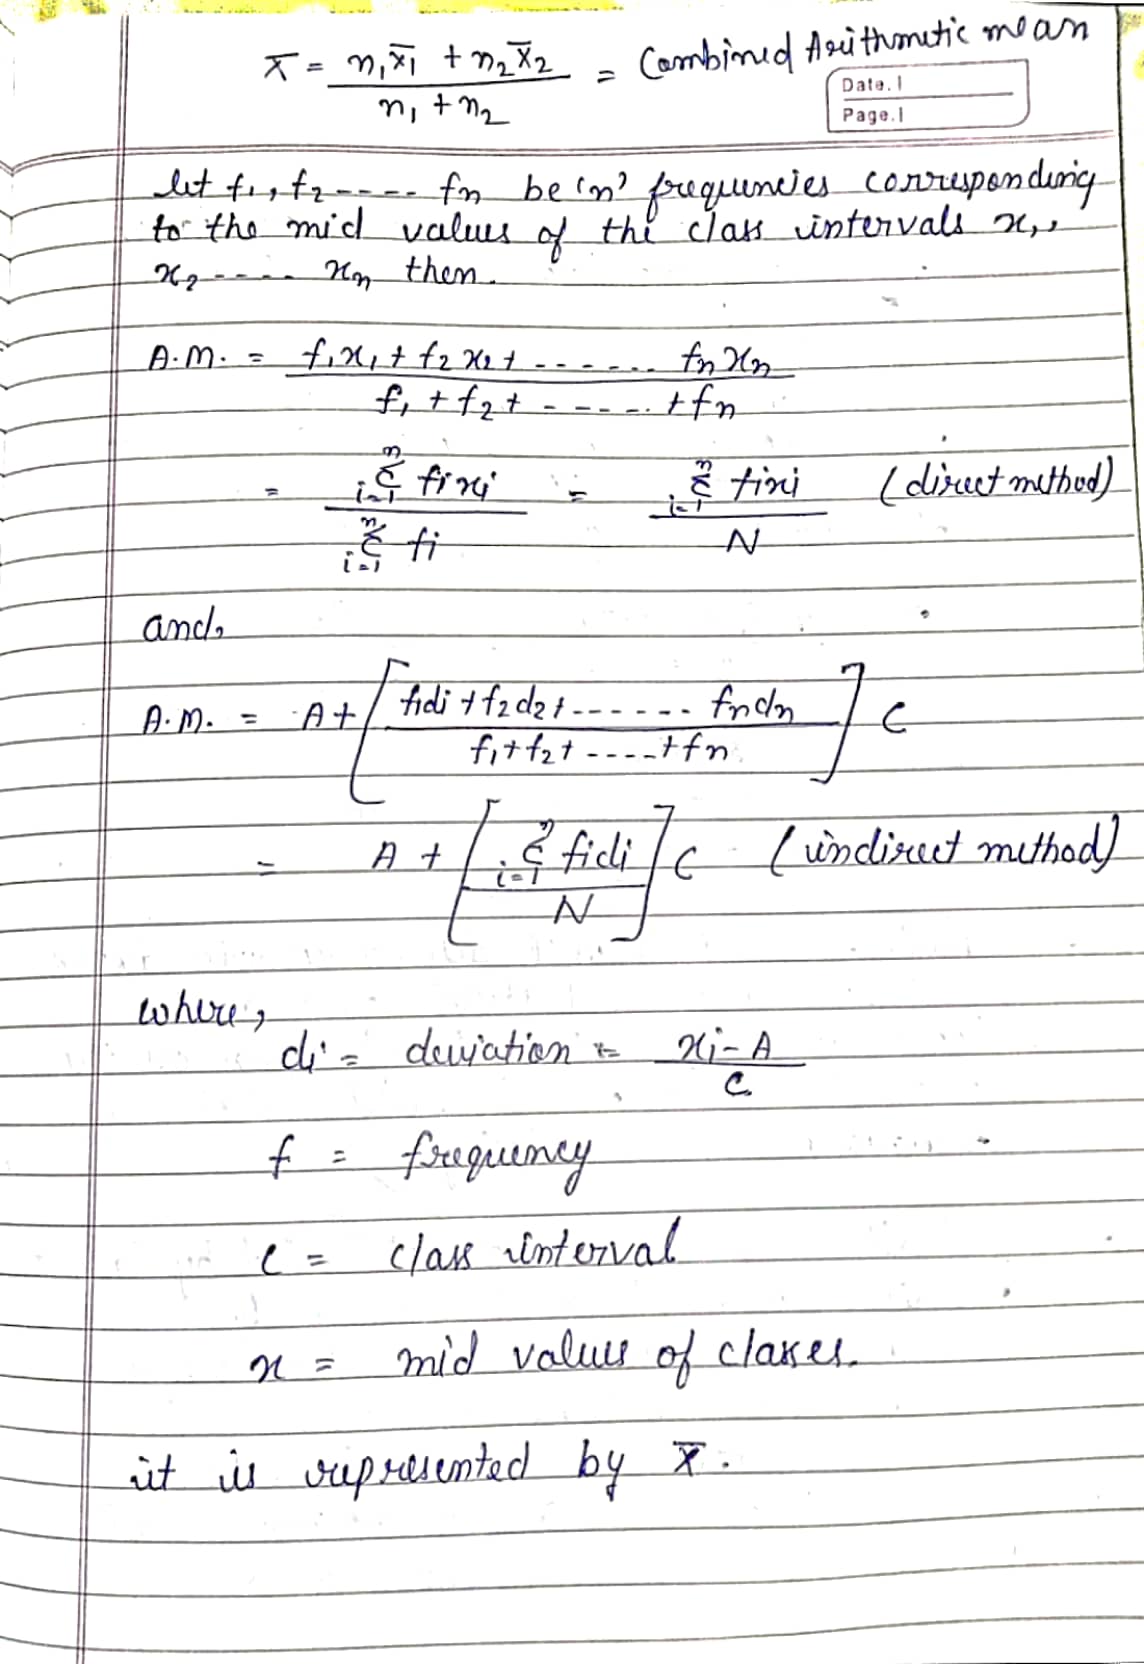 x̄ = n₁x̄₁ + n₂x̄₂ / n₁ + n₂ = Combined Arithmetic mean
Date.
Page.
let f₁, f₂ ---- fn be 'n' frequencies corresponding
to the mid values of the class intervals x₁,
x₂ ---- xn then.
A.M. = f₁x₁ + f₂x₂ + ------ fnxn / f₁ + f₂ + ----- + fn
= Σ(i=1 to n) fixi / Σ(i=1 to n) fi = Σ(i=1 to n) fixi / N (direct method)
and,
A.M. = A + [ f₁d₁ + f₂d₂ + ------ fndn / f₁ + f₂ + ---- + fn ] C
= A + [ Σ(i=1 to n) fidi / N ] C (indirect method)
where,
di = deviation = xi - A / C
f = frequency
C = class interval
x = mid values of classes.
it is represented by x̄.